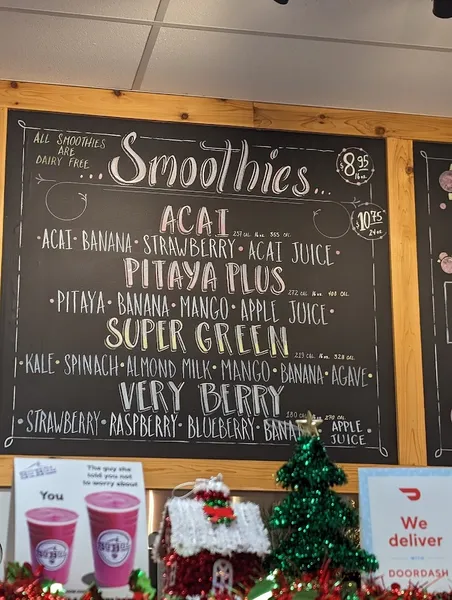 ALL SMOOTHIES
ARE
DAIRY FREE
...Smoothies...
8.95
16 oz
10.75
24 oz
ACAI
ACAI • BANANA • STRAWBERRY • ACAI JUICE •
PITAYA PLUS
272 CAL 16 oz. 408 CAL
• PITAYA • BANANA • MANGO • APPLE JUICE •
SUPER GREEN
219 CAL 16 oz. 328 CAL
• KALE • SPINACH • ALMOND MILK • MANGO • BANANA • AGAVE •
VERY BERRY
180 CAL 270 CAL
• STRAWBERRY • RASPBERRY • BLUEBERRY • BANANA • APPLE
JUICE
The guy she
told you not
to worry about
You
We
deliver
WITH
DOORDASH